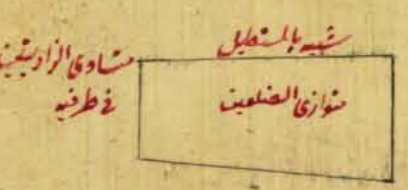 شبيه بالمستطيل
متساوى الزاويتين
فى طرفيه
متوازى الضلعين